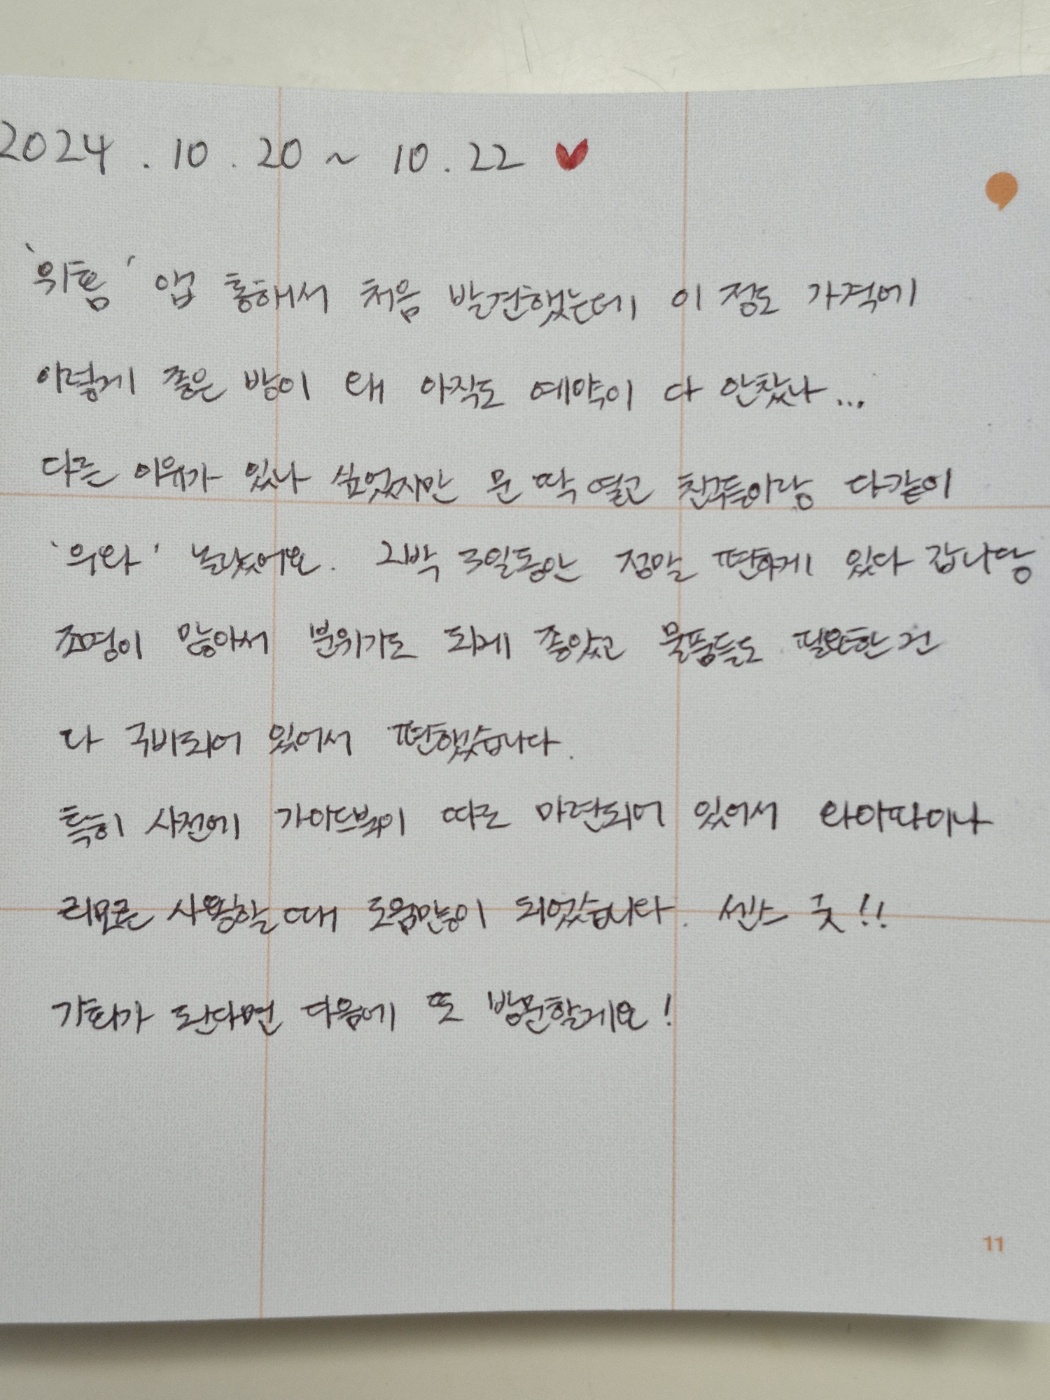 2024.10.20 ~ 10.22 ♥
'위홈' 앱 통해서 처음 발견했는데 이 정도 가격에
이렇게 좋은 방이 왜 아직도 예약이 다 안찼나...
다른 이유가 있나 싶었지만 문 딱 열고 친구들이랑 다같이
'우와' 놀랐어요. 2박 3일동안 정말 편하게 있다 갑니당
조명이 많아서 분위기도 되게 좋았고 물품들도 필요한 건
다 구비되어 있어서 편했습니다.
특히 사전에 가이드북이 따로 마련되어 있어서 와이파이나
리모콘 사용할 때 도움많이 되었습니다. 센스 굿!!
기회가 된다면 다음에 또 방문할게요!
11